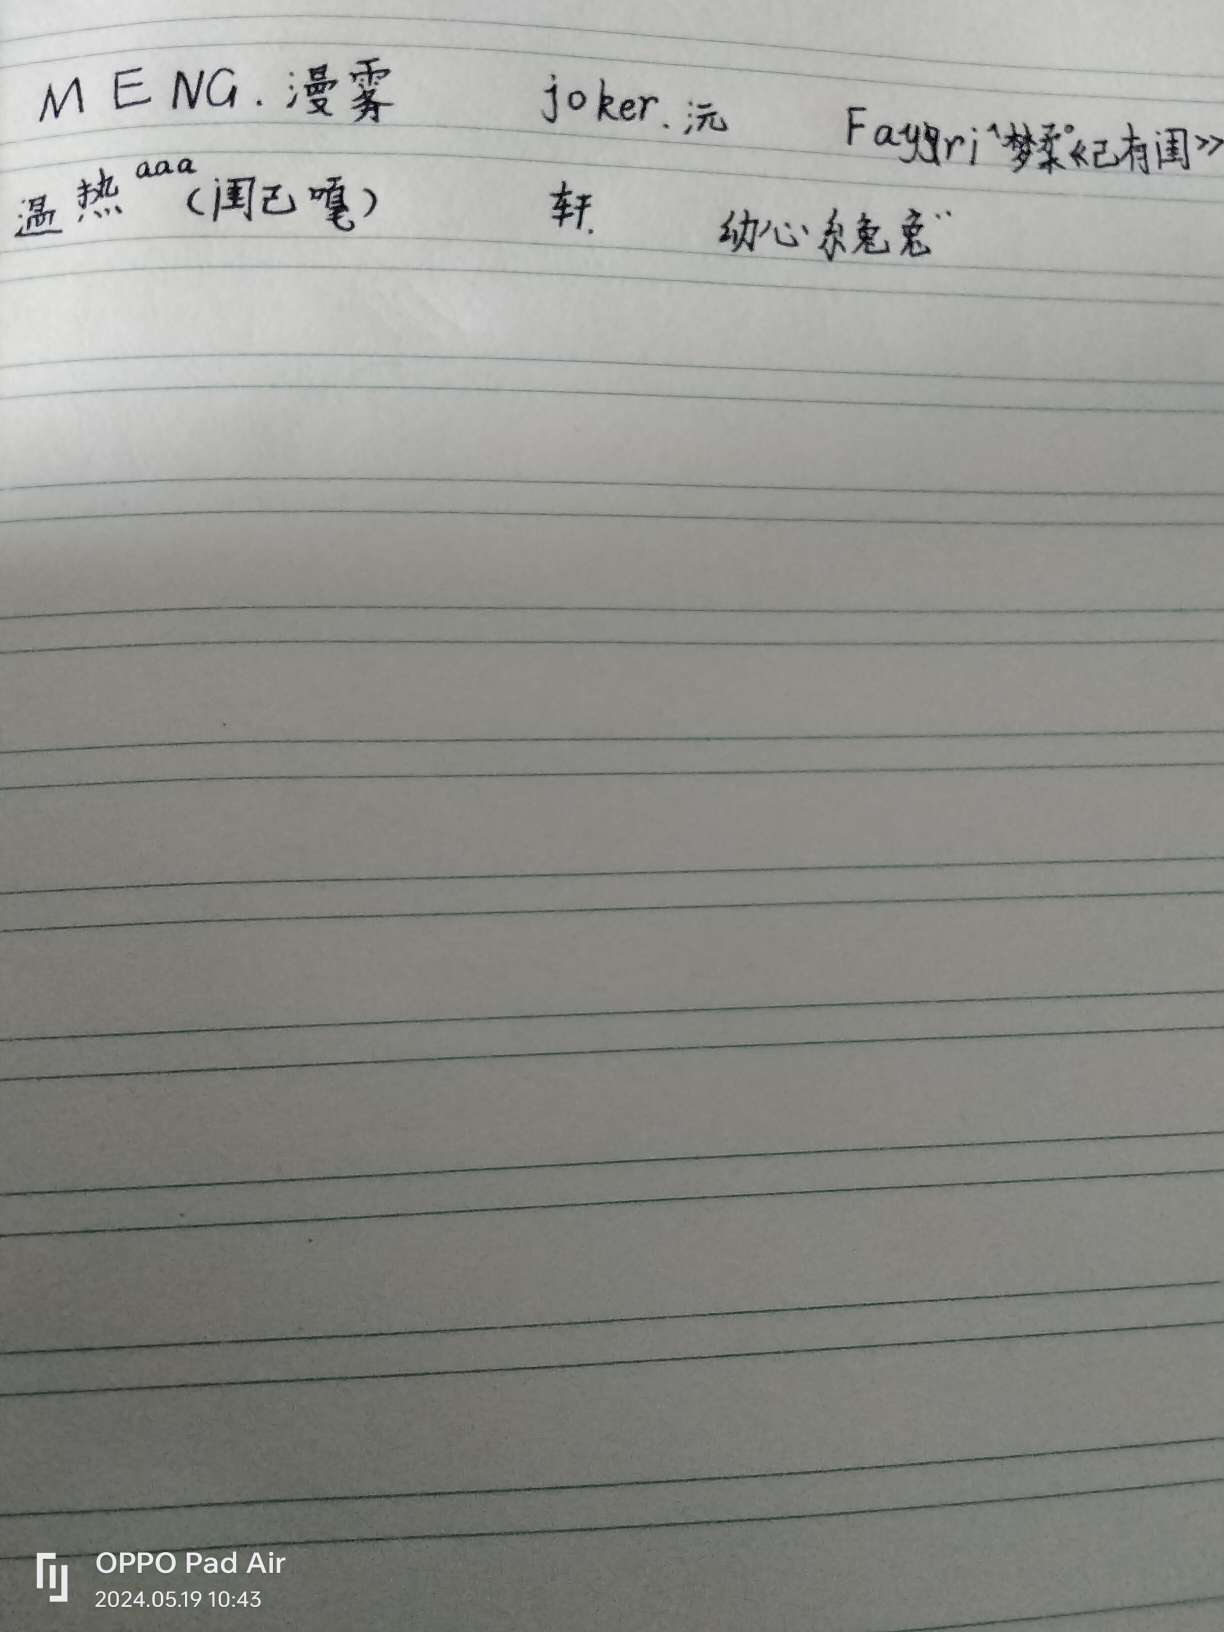 MENG.漫雾 joker.沅 Fayyri^梦柔°《已有闺》
温热aaa（闺己嘎） 轩. 幼心糸兔兔¨
OPPO Pad Air
2024.05.19 10:43